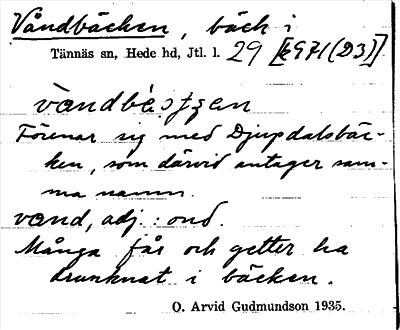 Våndbäcken, bäck i
Tännäs sn, Hede hd, Jtl. l. 29 [k971(D3)]
Förenar sig med Djupdalsbäc-
ken, som därvid antager sam-
ma namn.
vand, adj.: ond.
Många får och getter ha
drunknat i bäcken.
O. Arvid Gudmundson 1935.